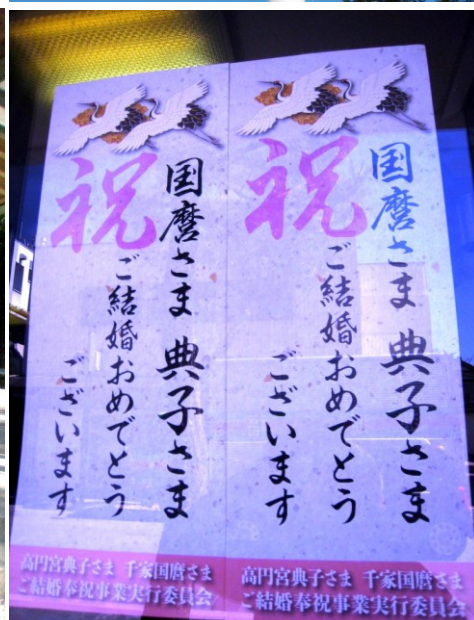 祝
国麿さま 典子さま
ご結婚おめでとう
ございます
高円宮典子さま 千家国麿さま
ご結婚奉祝事業実行委員会
祝
国麿さま 典子さま
ご結婚おめでとう
ございます
高円宮典子さま 千家国麿さま
ご結婚奉祝事業実行委員会